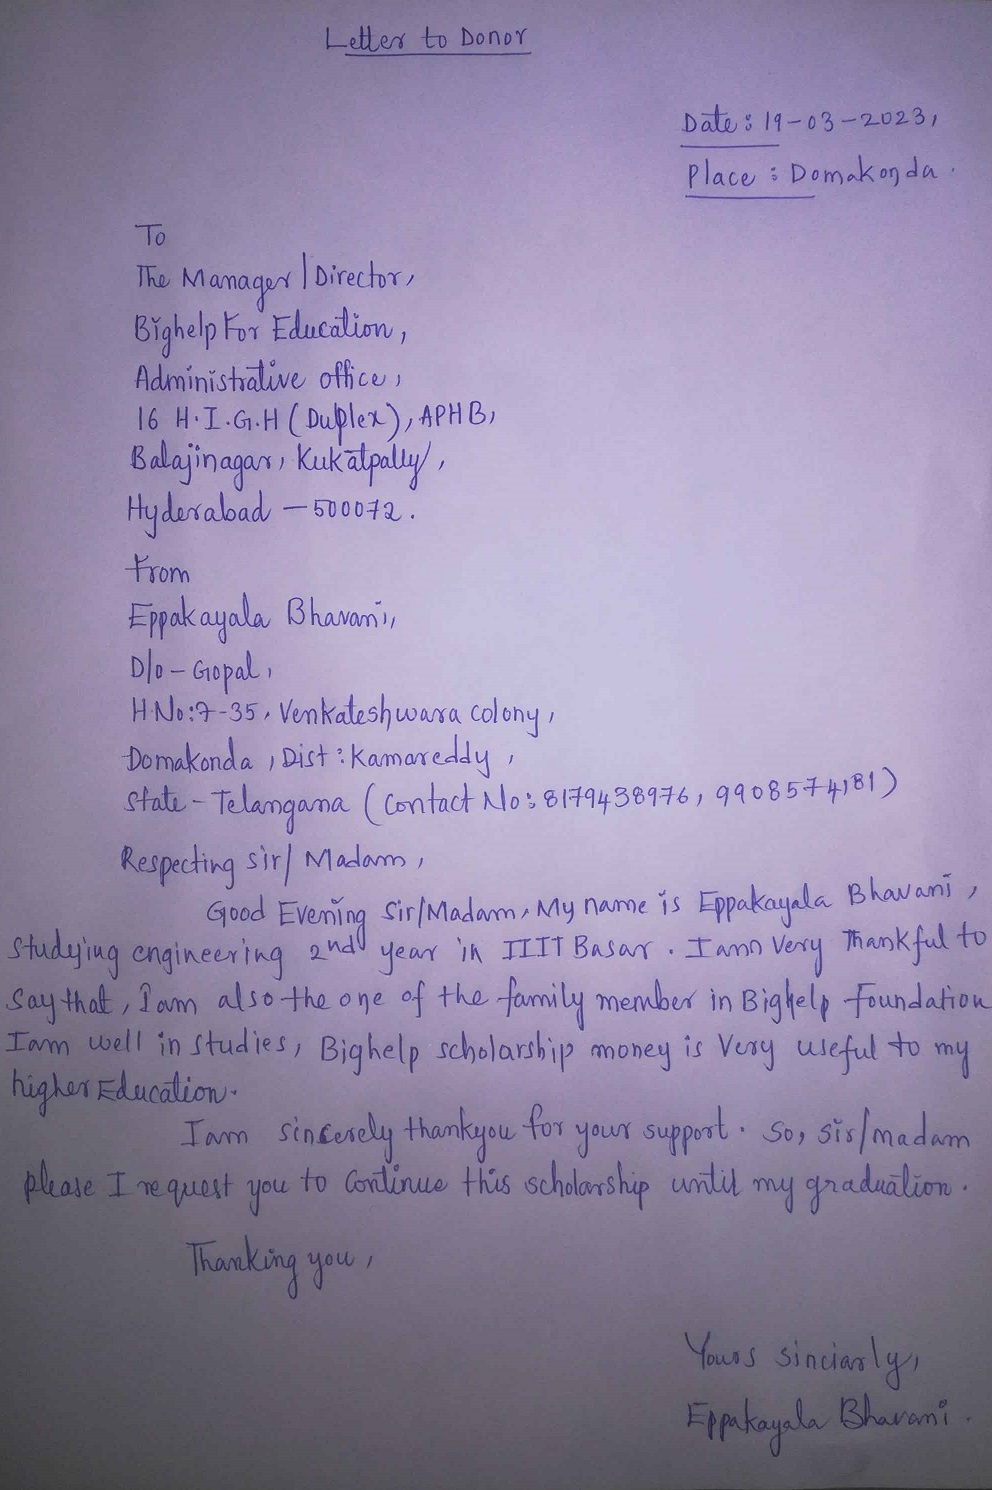 Letter to Donor
Date : 19-03-2023,
Place : Domakonda.
To
The Manager | Director,
Bighelp For Education,
Administrative office,
16 H.I.G.H (Duplex), APHB,
Balajinagar, Kukatpally,
Hyderabad - 500072.
From
Eppakayala Bhavani,
D/o - Gopal,
H.No:7-35, Venkateshwara colony,
Domakonda, Dist : Kamareddy,
State - Telangana (Contact No: 8179438976, 9908574181)
Respecting sir/ Madam,
Good Evening Sir/Madam, My name is Eppakayala Bhavani,
studying engineering 2nd year in IIIT Basar. I am Very Thankful to
Say that, I am also the one of the family member in Bighelp foundation
I am well in studies, Bighelp scholarship money is Very useful to my
higher Education.
I am sincerely thankyou for your support. So, sir/madam
please I request you to Continue this scholarship until my graduation.
Thanking you,
Yours sinciarly,
Eppakayala Bhavani.